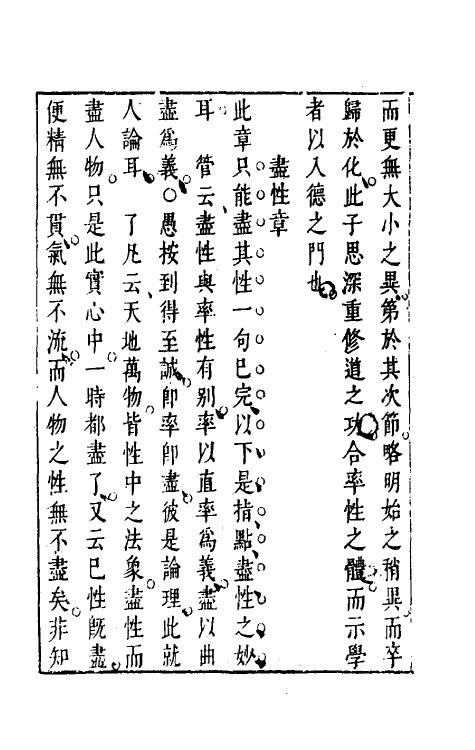 而更無大小之異第於其次節略明始之稍異而卒
歸於化此子思深重修道之功合率性之體而示學
者以入德之門也
盡性章
此章只能盡其性一句已完以下是指點盡性之妙
耳　管云盡性與率性有别率以直率爲義盡以曲
盡爲義○愚按到得至誠卽率卽盡彼是論理此就
人論耳　了凡云天地萬物皆性中之法象盡性而
盡人物只是此實心中一時都盡了又云已性旣盡
便精無不貫氣無不流而人物之性無不盡矣非知